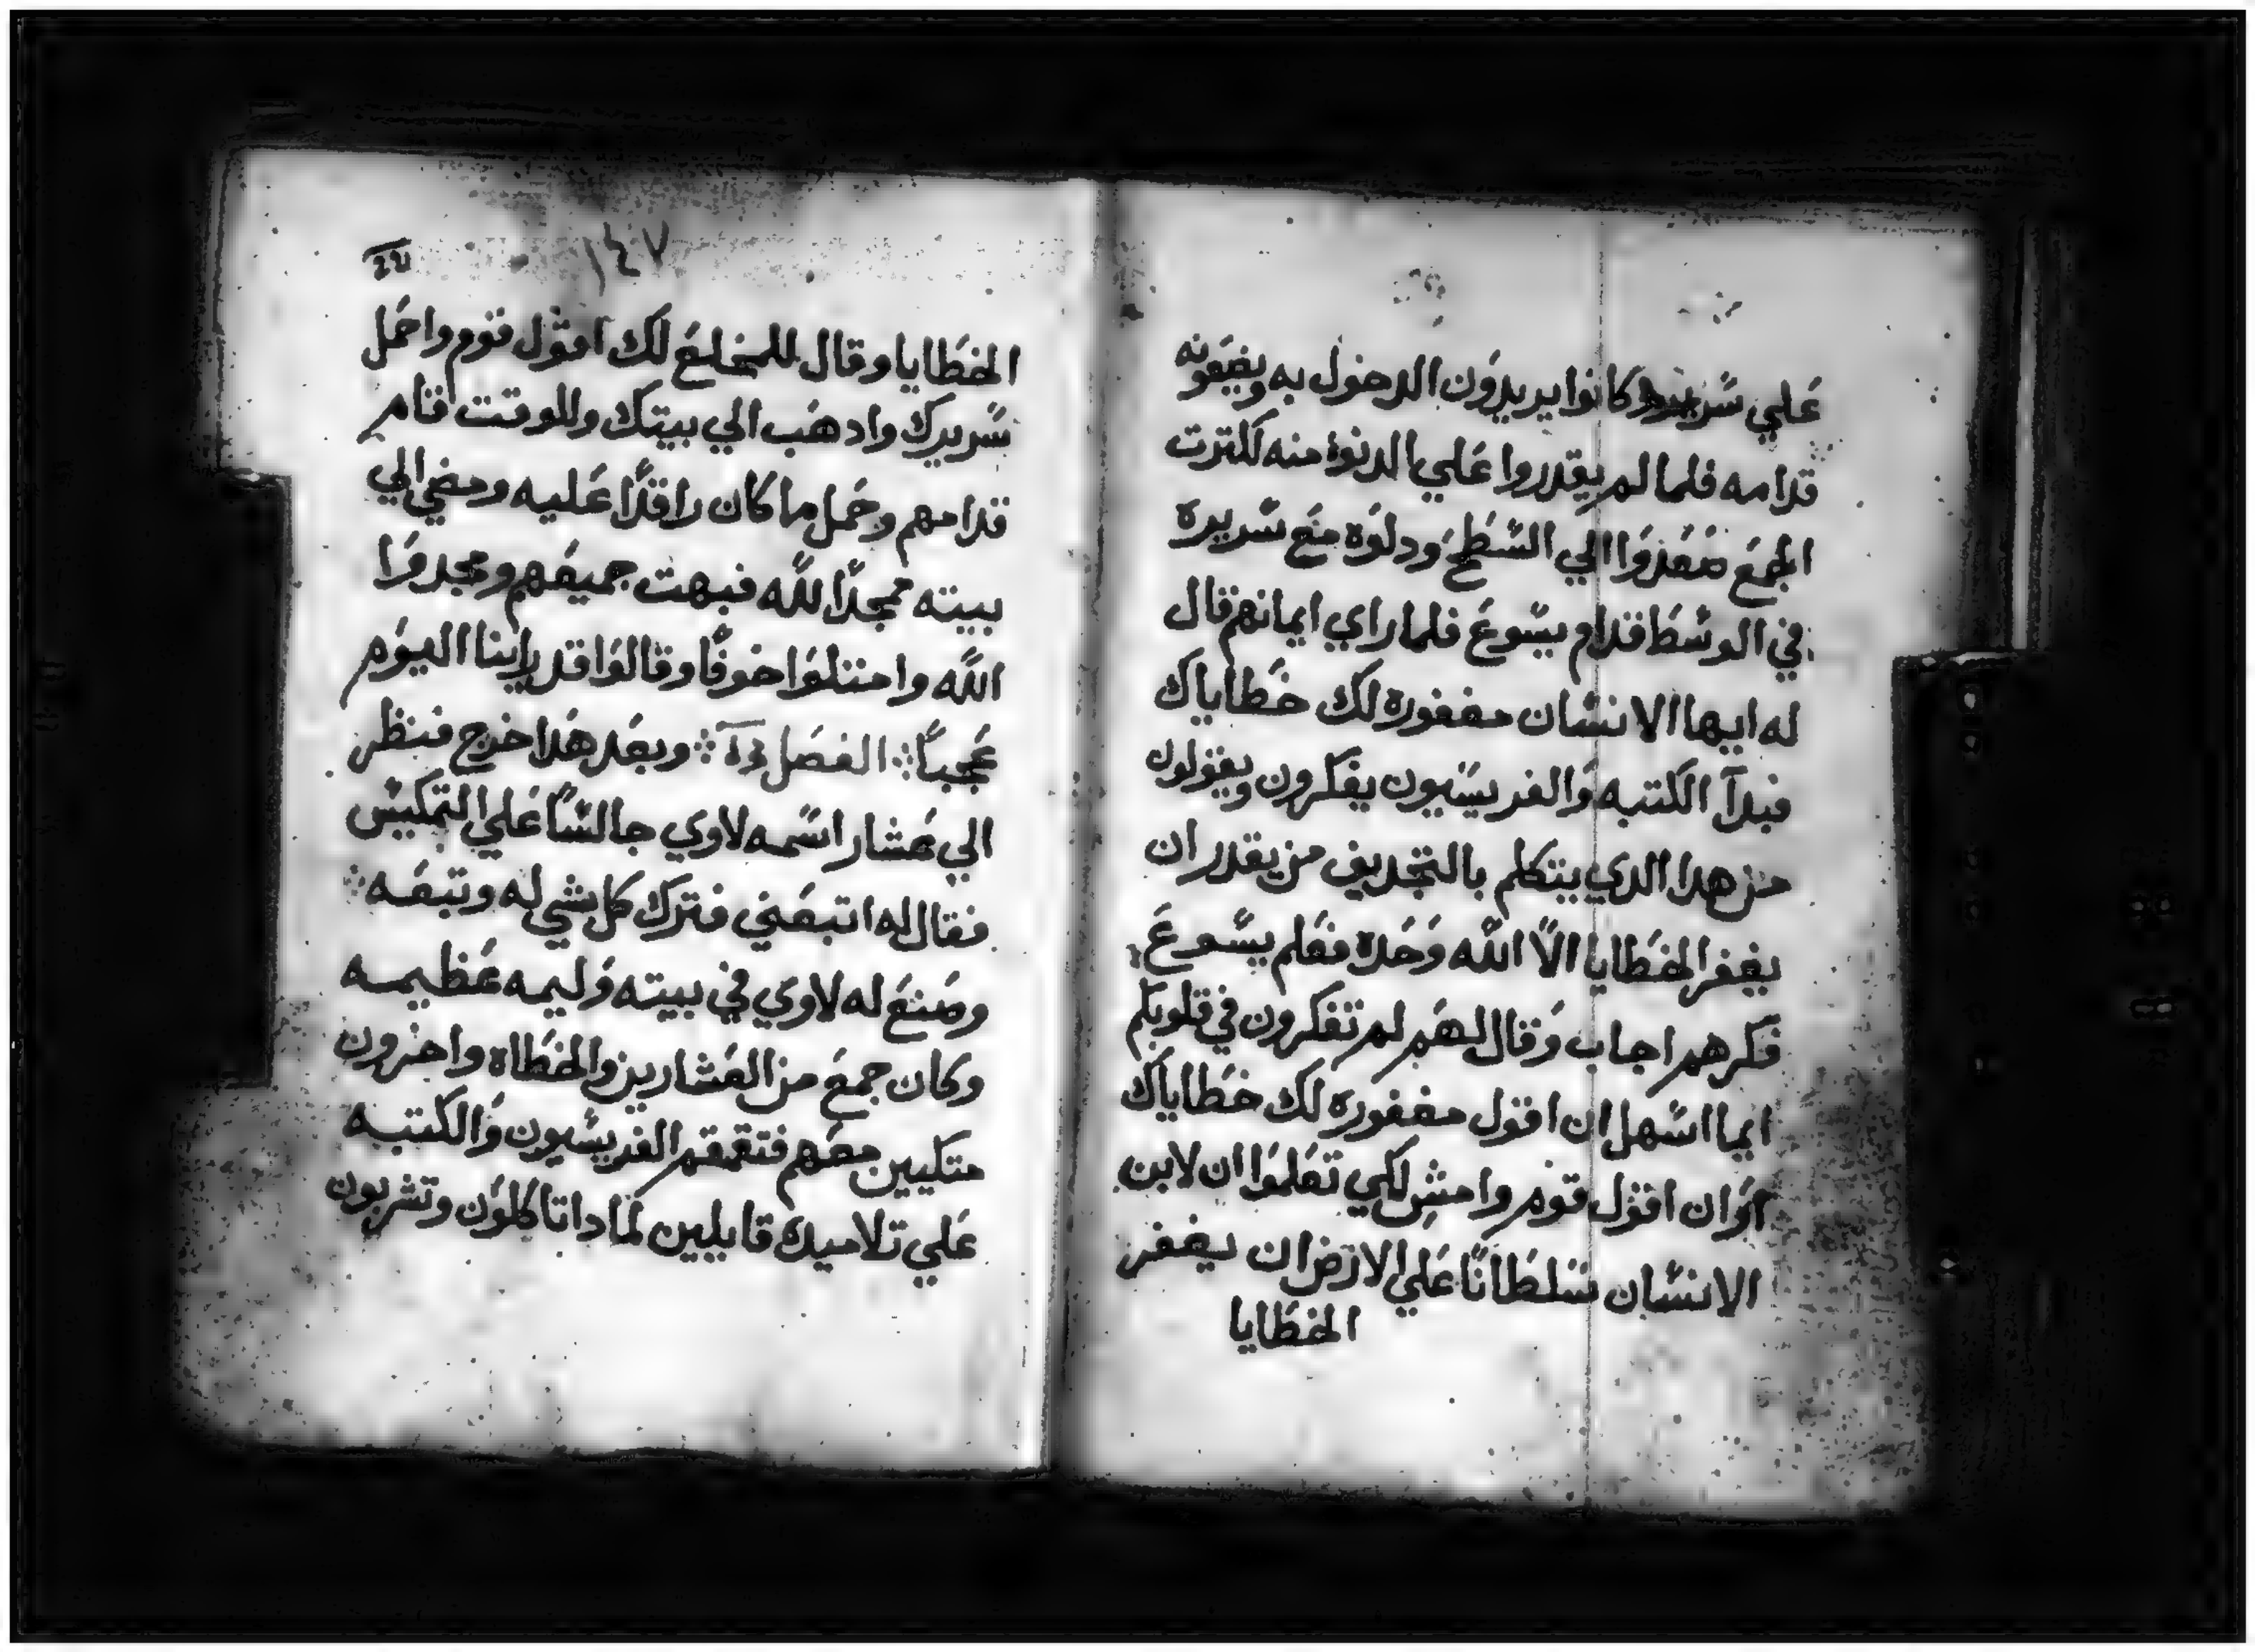 علي سريره كانوا يريدون الدخول به ويضعونه
قدامه فلما لم يقدروا علي الدنوا منه لكترت
الجمع صعدوا الي السطح ودلوه مع سريره
في الوسط قدام يسوع فلما راي ايمانهم قال
له ايها الانسان مغفوره لك خطاياك
فبدآ الكتبه والفريسيون يفكرون ويقولون
من هدا الدي يتكلم بالتجديف من يقدر ان
يغفر الخطايا الا الله وحده فعلم يسوع
فكرهم اجاب وقال لهم لم تفكرون في قلوبكم
ايما اسهل ان اقول مغفوره لك خطاياك
او ان اقول قوم وامش لكي تعلموا ان لابن
الانسان سلطانا علي الارض ان يغفر
الخطايا
١٤٧
الخطايا وقال للمخلع لك اقول قوم واحمل
سريرك وادهب الي بيتك وللوقت قام
قدامهم وحمل ما كان راقدا عليه ومضي الي
بيته ممجدا لله فبهت جميعهم ومجدوا
الله وامتلوا خوفا وقالوا قد راينا اليوم
عجبا الفصل وبعد هدا خرج فنظر
الي عشار اسمه لاوي جالسا علي التمكيس
فقال له اتبعني فترك كل شي له وتبعه
وصنع له لاوي في بيته وليمه عظيمه
وكان جمع من العشارين والخطاه واخرون
متكيين معهم فتقمقم الفريسيون والكتبه
علي تلاميده قايلين لمادا تاكلون وتشربون